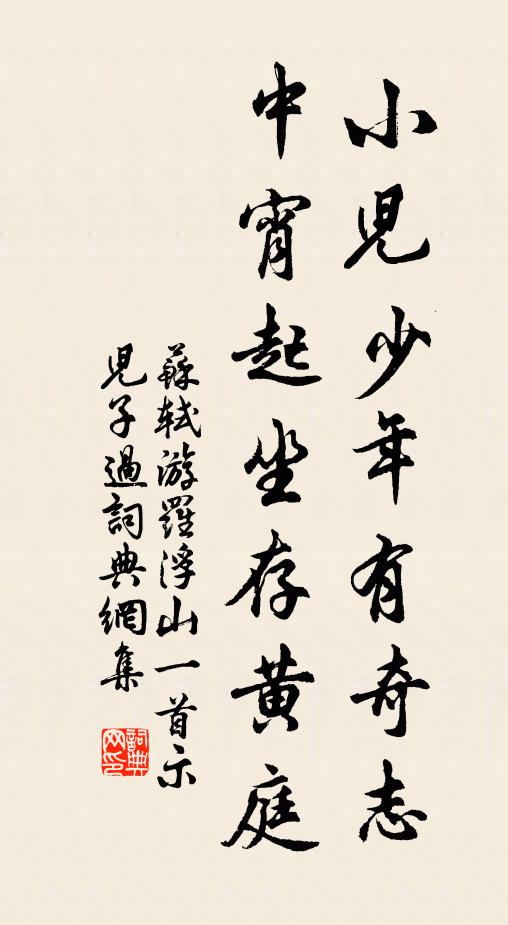 小兒少年有奇志
中宵起坐存黄庭
蘇軾游羅浮山一首示
兒子過詞典網集
詞典
网印